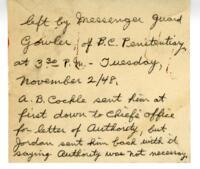 left by Messenger Guard
Gowler, of B.C. Penitentiary
at 3:30 P.M. - Tuesday,
November 2/48.
A. B. Cockle sent him at
first down to Chief's office
for letter of Authority, but
Jordan sent him back with it
saying Authority was not necessary.